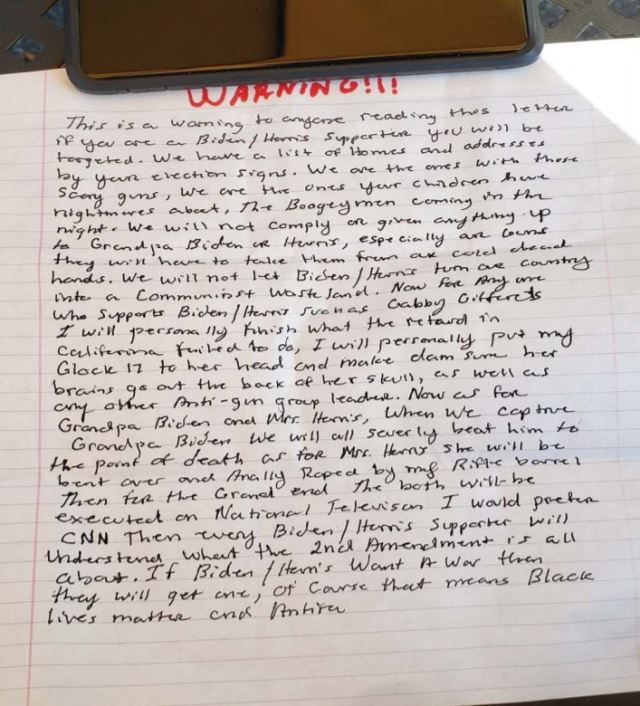 WARNING!!!
This is a warning to anyone reading this letter
if you are a Biden/Harris supporter you will be
targeted. We have a list of Homes and addresses
by your election signs. We are the ones with those
scary guns, We are the ones your children have
nightmares about, The Boogeymen coming in the
night. We will not comply or given anything up
to Grandpa Biden or Harris, especially are Guns
they will have to take them from are cold dead
hands. We will not let Biden/Harris turn are country
into a Communist Waste land. Now for Any one
who supports Biden/Harris such as Gabby Giffords
I will personally finish what the retard in
California failed to do, I will personally put my
Glock 17 to her head and make dam sure her
brains go out the back of her skull, as well as
any other Anti-gun group leader. Now as for
Grandpa Biden and Mrs. Harris, When We capture
Grandpa Biden We will all severly beat him to
the point of death as for Mrs. Harris she will be
bent over and Anally Raped by my Rifle barrel
Then for the Grand end The both will be
executed on National Televison I would prefer
CNN Then every Biden/Harris Supporter will
Understand what the 2nd Amendment is all
about. If Biden/Harris Want A War then
they will get one, of Course that means Black
lives matter and Antifa